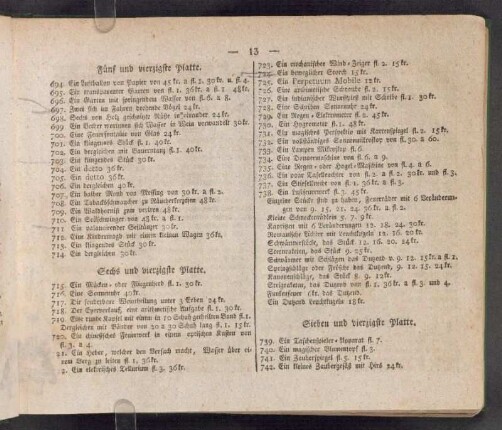 — 13 —
Fünf und vierzigste Platte.
694. Ein Luftballon von Papier von 45 kr. a fl. 3. 30 kr. u. fl. 4.
695. Ein transparenter Garten von fl. 1. 36kr. a fl. 1 48kr.
696. Ein Garten mit springendem Wasser von fl. 6. a 8.
697. Zwei sich im Fahren drehende Vögel 24kr.
698. Sechs von Holz geschnitzte Köpfe ineinander 24kr.
699. Ein Becher worinnen sich Wasser in Wein verwandelt 30kr.
700. Eine Feuerfontaine von Glas 24 kr.
701. Ein fliegendes Stück fl. 1. 40kr.
702. Ein dergleichen mit Bauerntanz fl. 1. 40kr.
703. Ein fliegendes Stück 30kr.
704. Ein ditto 36kr.
705. Ein ditto 36kr.
706. Ein dergleichen 40kr.
707. Ein halber Mond von Messing von 30kr. a fl. 2.
708. Ein Tabackschmaucher zu Räucherkerzchen 48kr.
709. Ein Waldbernis zum werfen 48kr.
710. Ein Seilschwinger von 48kr. a fl. 1.
711. Ein balancirender Beißiger 30kr.
712. Eine Kindermagd mit einem kleinen Wagen 36kr.
713. Ein fliegendes Stück 30kr.
714. Ein dergleichen 30kr.
Sechs und vierzigste Platte.
715. Ein Mücken- oder Fliegentod fl. 1. 30kr.
716. Eine Sennenuhr 40kr.
717. Die scheinbare Vertheilung unter 3 Erben 24kr.
718. Der Sperrverkauf, eine arithmetische Aufgabe fl. 1. 30kr.
719. Eine runde Kapsel mit einem 10 Schuh gestickten Band fl. 1.
Dergleichen mit Bänder von 20 a 30 Schuh lang fl. 1. 15kr.
720. Ein chinesisches Feuerwerk in einem optischen Kasten von
fl. 3. a 4.
21. Ein Heber, welcher den Versuch macht, Wasser über ei-
nem Berg zu leiten fl. 1. 36kr.
2. Ein elektrisches Tellurium fl. 3. 36kr.
723. Ein mechanischer Wind-Zeiger fl. 2. 15kr.
724. Ein beweglicher Storch 15kr.
725. Ein Perpetuum Mobile 12kr.
726. Eine archimetische Schraube fl. 2. 15kr.
727. Ein indianischer Wurfspieß mit Scheibe fl. 1. 30kr.
728. Eine Schreiben Sonnenuhr 24kr.
729. Ein Regen-Elektrometer fl. 1. 45kr.
730. Ein Hygrometer fl. 1. 48kr.
731. Ein magisches Perspektiv mit Kartenspiegel fl. 2. 15kr.
732. Ein vollständiges Sonnenmikroskop von fl. 30. a 60.
733. Ein Lampen Mikroskop fl. 6.
734. Eine Donnermaschine von fl. 6. a 9.
735. Eine Regen- oder Hagel-Maschine von fl. 4. a 6.
736. Ein paar Tabakröhrer von fl. 2. a fl. 2. 30kr.
737. Ein Stiefelknecht von fl. 1. 36kr. a fl. 2. 30kr.
738. Ein Juliénwerck fl. 3. 45kr.
Einzelne Stücke sind zu haben, Feuerräder mit 6 Veränderun-
gen von 9. 15. 21. 24. 36kr. a fl. 2.
Kleine Schneckenrädlein 5. 7. 9kr.
Raketten mit 6 Veränderungen 12. 18. 24. 30kr.
Romanische Lichter mit Leuchtkugeln 12. 16. 20kr.
Schwärmerstücke, das Stück 12. 16. 20. 24kr.
Sternraketen, das Stück 9. 25kr.
Schwärmer mit Beschlägen das Dutzend v. 9. 12. 15kr. a fl. 1.
Springschläge oder Frösche das Dutzend, 9. 12. 15. 24kr.
Kanonenschläge, das Stück 8. 9. 12kr.
Steigraketen, das Dutzend von fl. 1. 36kr. a fl. 3. und 4.
Funkenfeuer 6kr. das Dutzend.
Ein Dutzend Leuchtkugeln 18kr.
Sieben und vierzigste Platte.
739. Ein Taschenspieler-Apparat fl. 7.
740. Ein magischer Blumentopf fl. 3.
741. Ein Zauberspiegel fl. 5. 15kr.
742. Ein kleines Zaubergefäß mit Hirs 24kr.